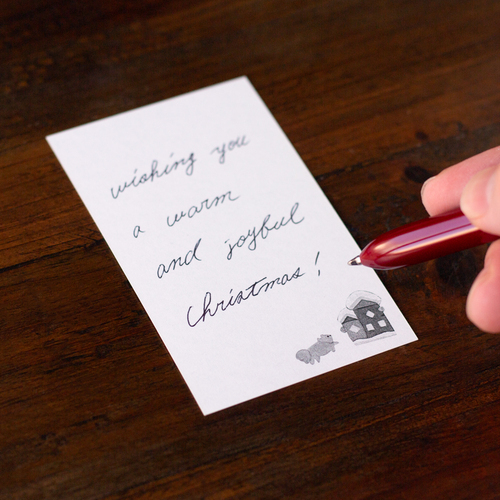 wishing you
a warm
and joyful
Christmas!